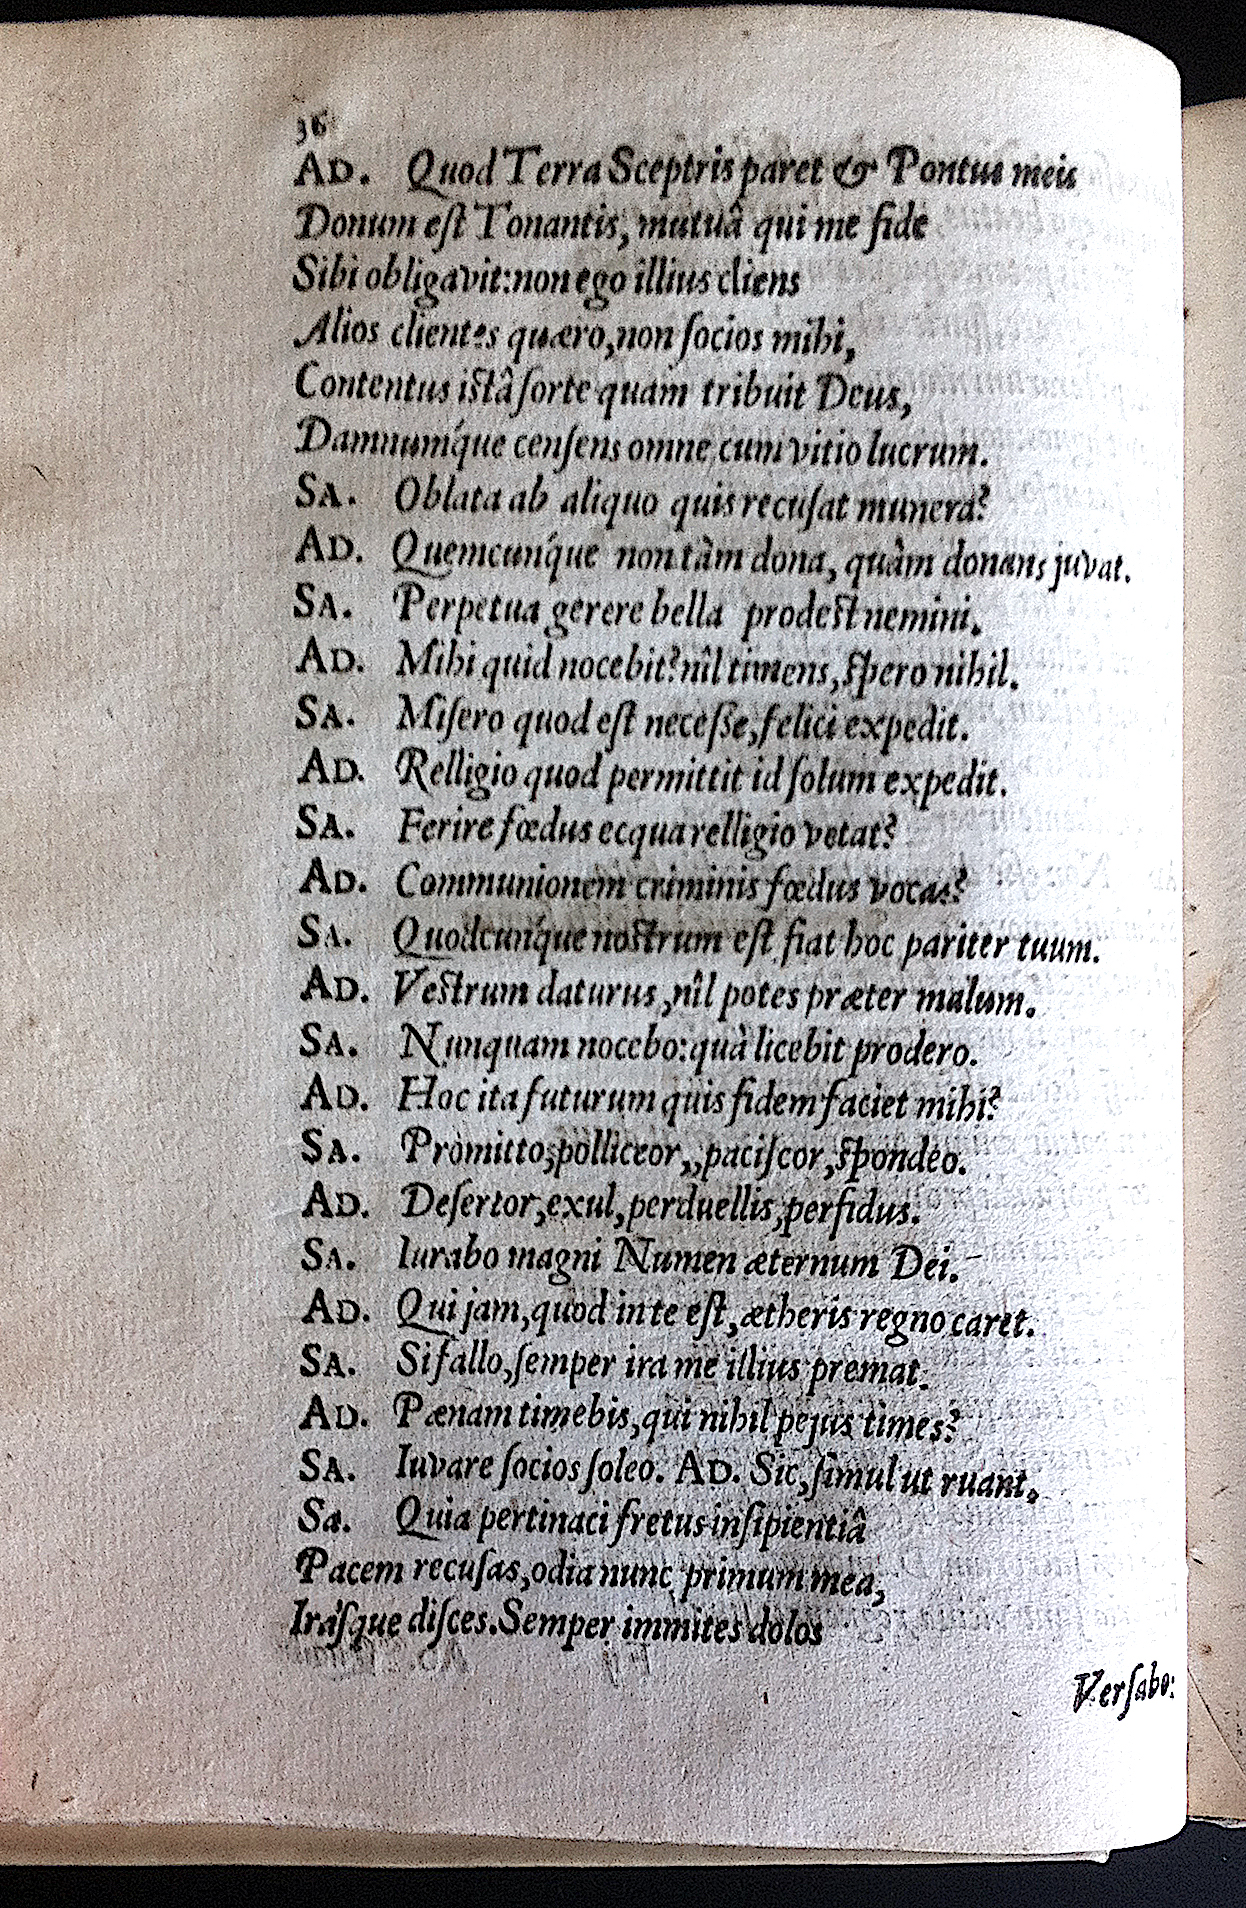 36
AD. Quod Terra Sceptris paret & Pontus meis
Donum eſt Tonantis, mutuâ qui me fide
Sibi obligavit: non ego illius cliens
Alios clientes quæro, non ſocios mihi,
Contentus iſtâ ſorte quam tribuit Deus,
Damnumq́ue cenſens omne cum vitio lucrum.
SA. Oblata ab aliquo quis recuſat munera?
AD. Quemcunq́ue non tàm dona, quàm donans juvat.
SA. Perpetua gerere bella prodeſt nemini.
AD. Mihi quid nocebit? nîl timens, ſpero nihil.
SA. Miſero quod eſt neceſſe, felici expedit.
AD. Relligio quod permittit id ſolum expedit.
SA. Ferire fœdus ecqua relligio vetat?
AD. Communionem criminis fœdus vocas?
SA. Quodcunq́ue noſtrum eſt fiat hoc pariter tuum.
AD. Veſtrum daturus, nîl potes præter malum.
SA. Nunquam nocebo: quà licebit prodero.
AD. Hoc ita futurum quis fidem faciet mihi?
SA. Promitto, polliceor,, paciſcor, ſpondeo.
AD. Deſertor, exul, perduellis, perfidus.
SA. Iurabo magni Numen æternum Dei.
AD. Qui jam, quod in te eſt, ætheris regno caret.
SA. Si fallo, ſemper ira me illius premat.
AD. Pænam timebis, qui nihil pejus times?
SA. Iuvare ſocios ſoleo. AD. Sic, ſimul ut ruant.
Sa. Quia pertinaci fretus inſipientiâ
Pacem recuſas, odia nunc primum mea,
Iráſque diſces. Semper immites dolos
Verſabo: